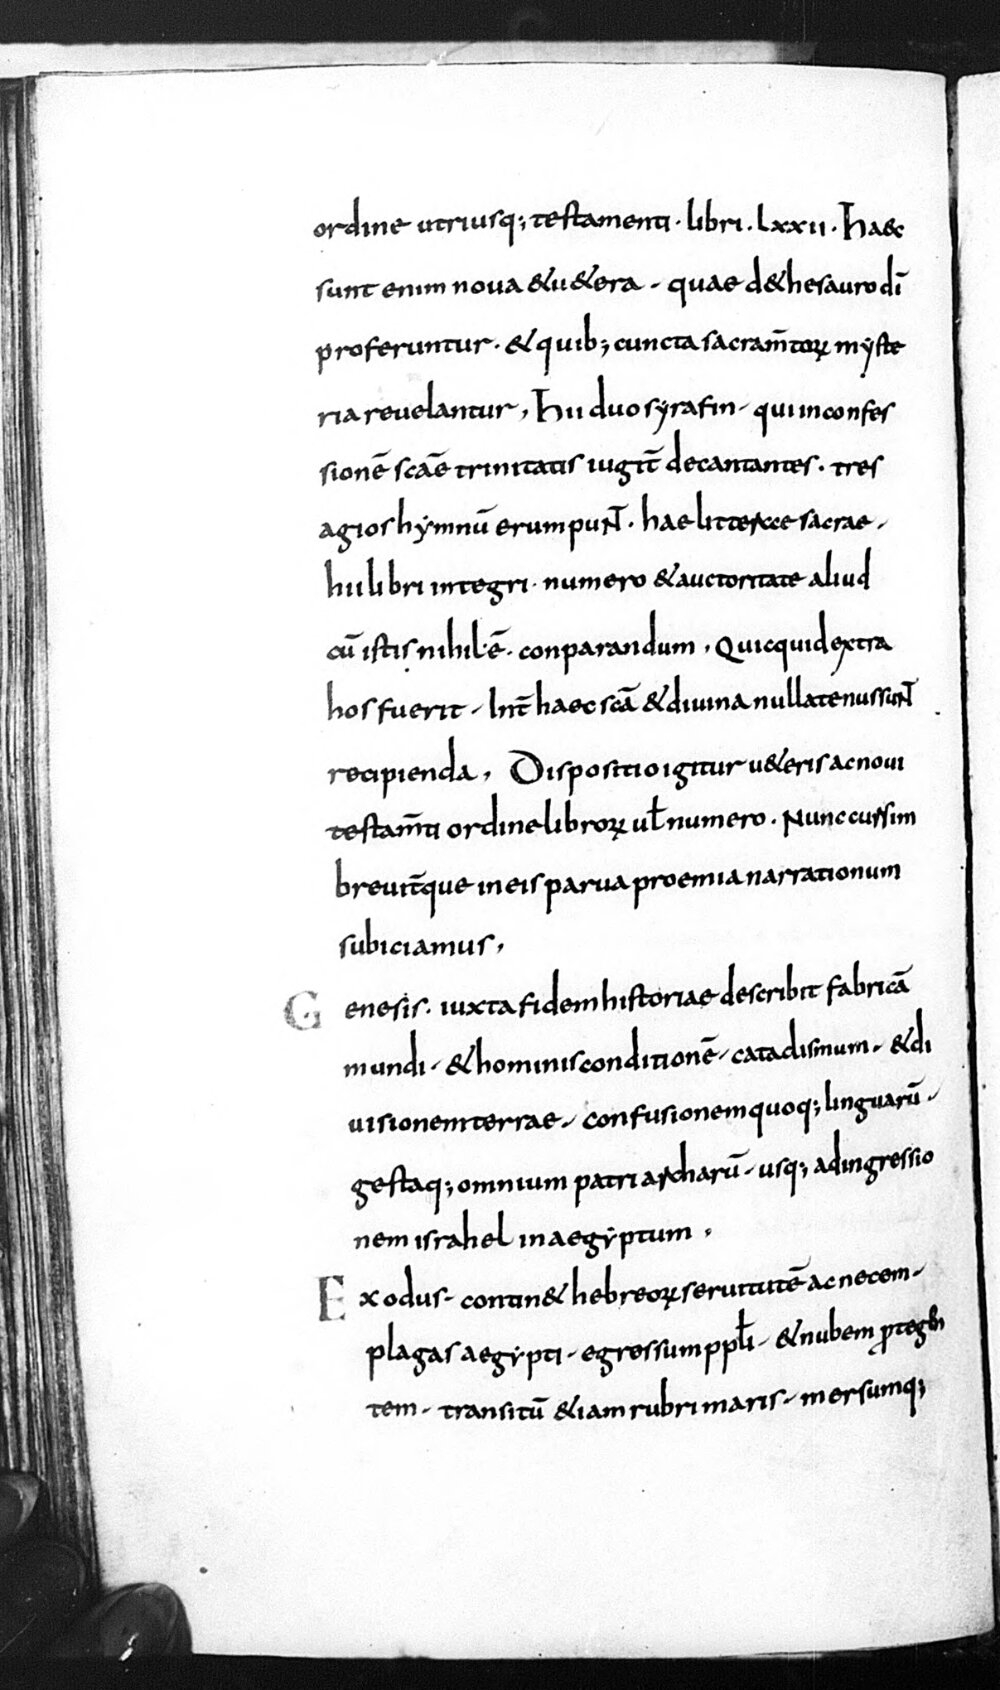 ordine utriusq; testamenti · libri · lxxii · haec
sunt enim noua & u&era - quae de thesauro dī
proferuntur · & quib; cuncta sacram̄torꝝ mẏste
ria reuelantur, hii duo sẏrafin - qui in confes
sionē scāe trinitatis iugit̄ decantantes · tres
agios hẏmnū erumpuNT̄ · hae litterae sacrae -
hii libri integri · numero & auctoritate aliud
cū istis nihil ē · conparandum, Quicquid extra
hos fuerit - Int̄ haec scā & diuina nullatenus suNT̄
recipienda, Dispositio igitur u&eris ac noui
testam̄ti ordine librorꝝ uł numero · Nunc cursim
breuit̄que in eis parua proemia narrationum
subiciamus,
Genesis · iuxta fidem historiae describit fabricā
mundi - & hominis conditionē - cataclismum - & di
uisionem terrae - confusionem quoq; linguarū -
gestaq; omnium patriarcharū - usq; ad ingressio
nem israhel in aegẏptum,
Exodus - contin& hebreorꝝ seruitutē ac necem -
plagas aegẏpti - egressum ppłi - & nubem ꝓtegen
tem - transitū & iam rubri maris - mersumq;